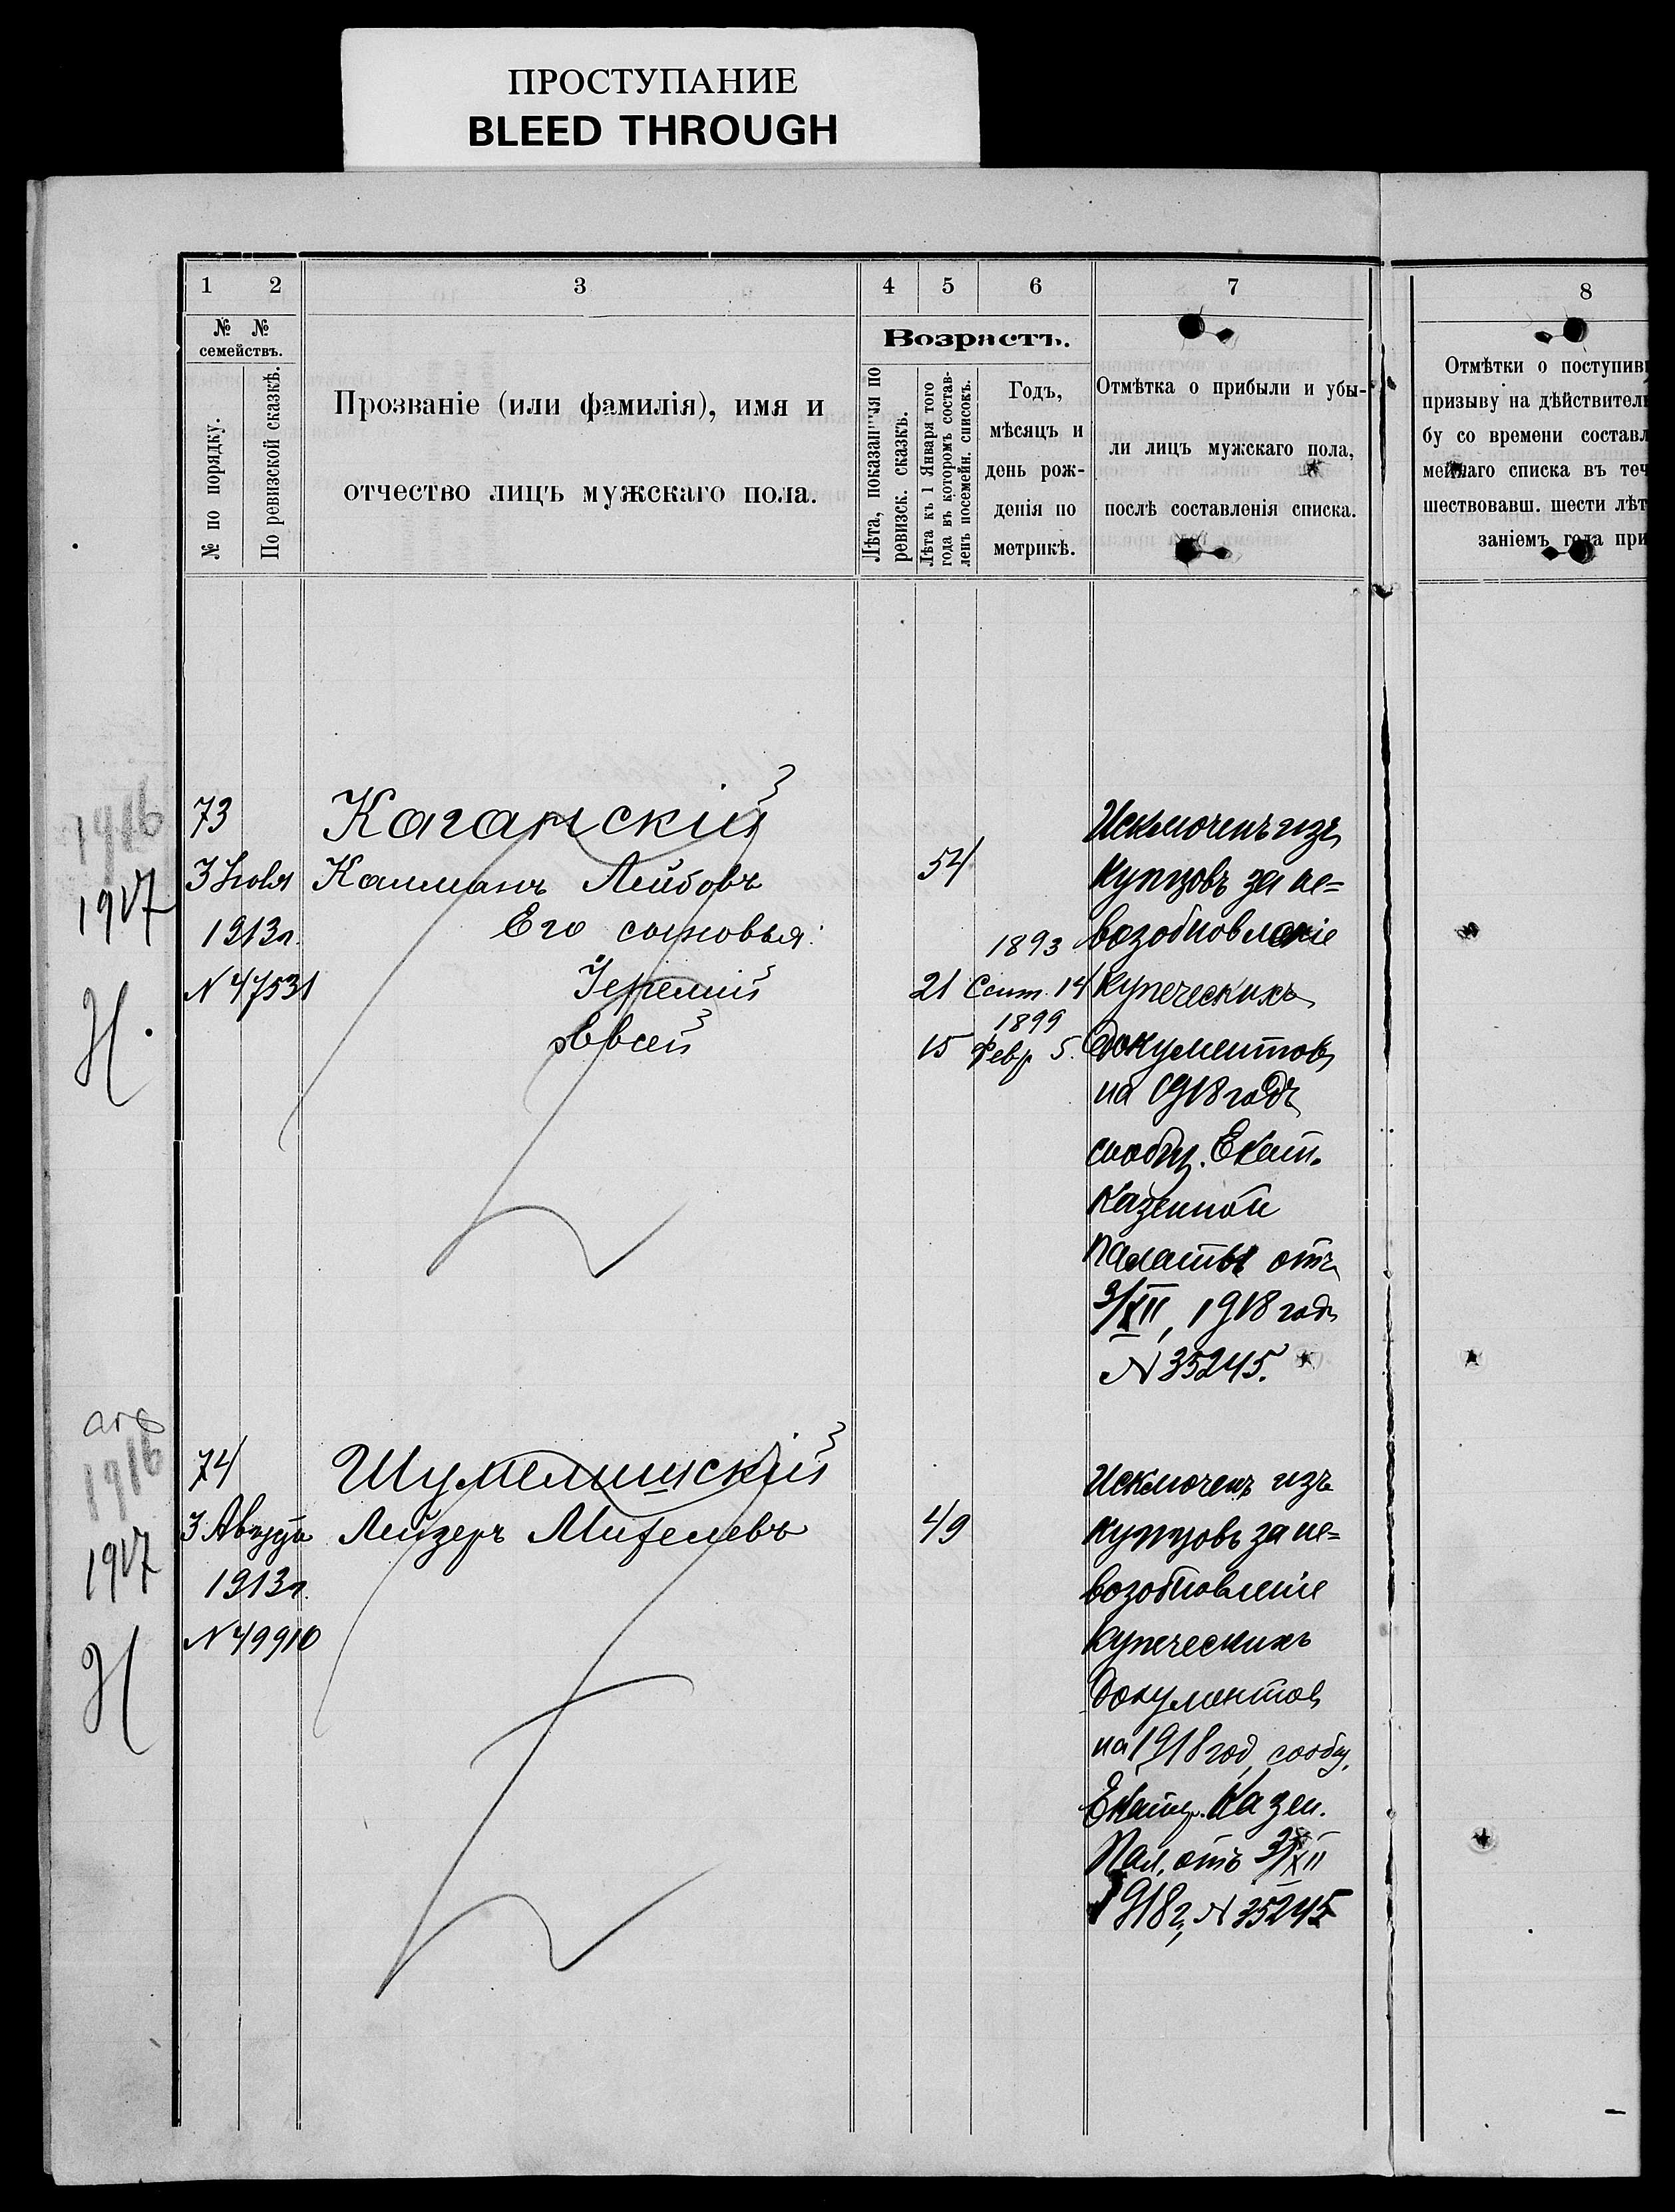 ПРОСТУПАНИЕ
BLEED THROUGH
1 2 3 4 5 6 7 8
№ № семействъ.
№ по порядку.
По ревизской сказкѣ.
Прозваніе (или фамилія), имя и
отчество лицъ мужскаго пола.
Возрастъ.
Лѣта, показанныя по
ревизск. сказкѣ.
Лѣта къ 1 Января того
года въ которомъ состав-
ленъ посемейн. списокъ.
Годъ,
мѣсяцъ и
день рож-
денія по
метрикѣ.
Отмѣтка о прибыли и убы-
ли лицъ мужскаго пола,
послѣ составленія списка.
Отмѣтки о поступив
призыву на дѣйствител
бу со времени составл
мейнаго списка въ теч
шествовавш. шести лѣт
заніемъ года при
1916
1917
Н.
73
3 Іюля
1913 г.
N 47531
Каганскій
Калманъ Лейбовъ 54
Его сыновья:
Іеремій 21 1893 Сент. 14
Евсей 15 1899 Февр. 5.
Исключенъ изъ
купцовъ за не=
возобновленіе
купеческихъ
документовъ
на 1918 годъ
сообщ. Екат.
Казенной
Палаты отъ
3/XII, 1918 годъ
N 35245.
1916
1917
Н
74
3 Августа
1913 г.
N 49910
Шумелишскій
Лейзеръ Михелевъ 49
Исключенъ изъ
купцовъ за не=
возобновленіе
купеческихъ
документовъ
на 1918 год, сообщ.
Екатер. Казен.
Пал. отъ 3/XII
1918 г, N 35245